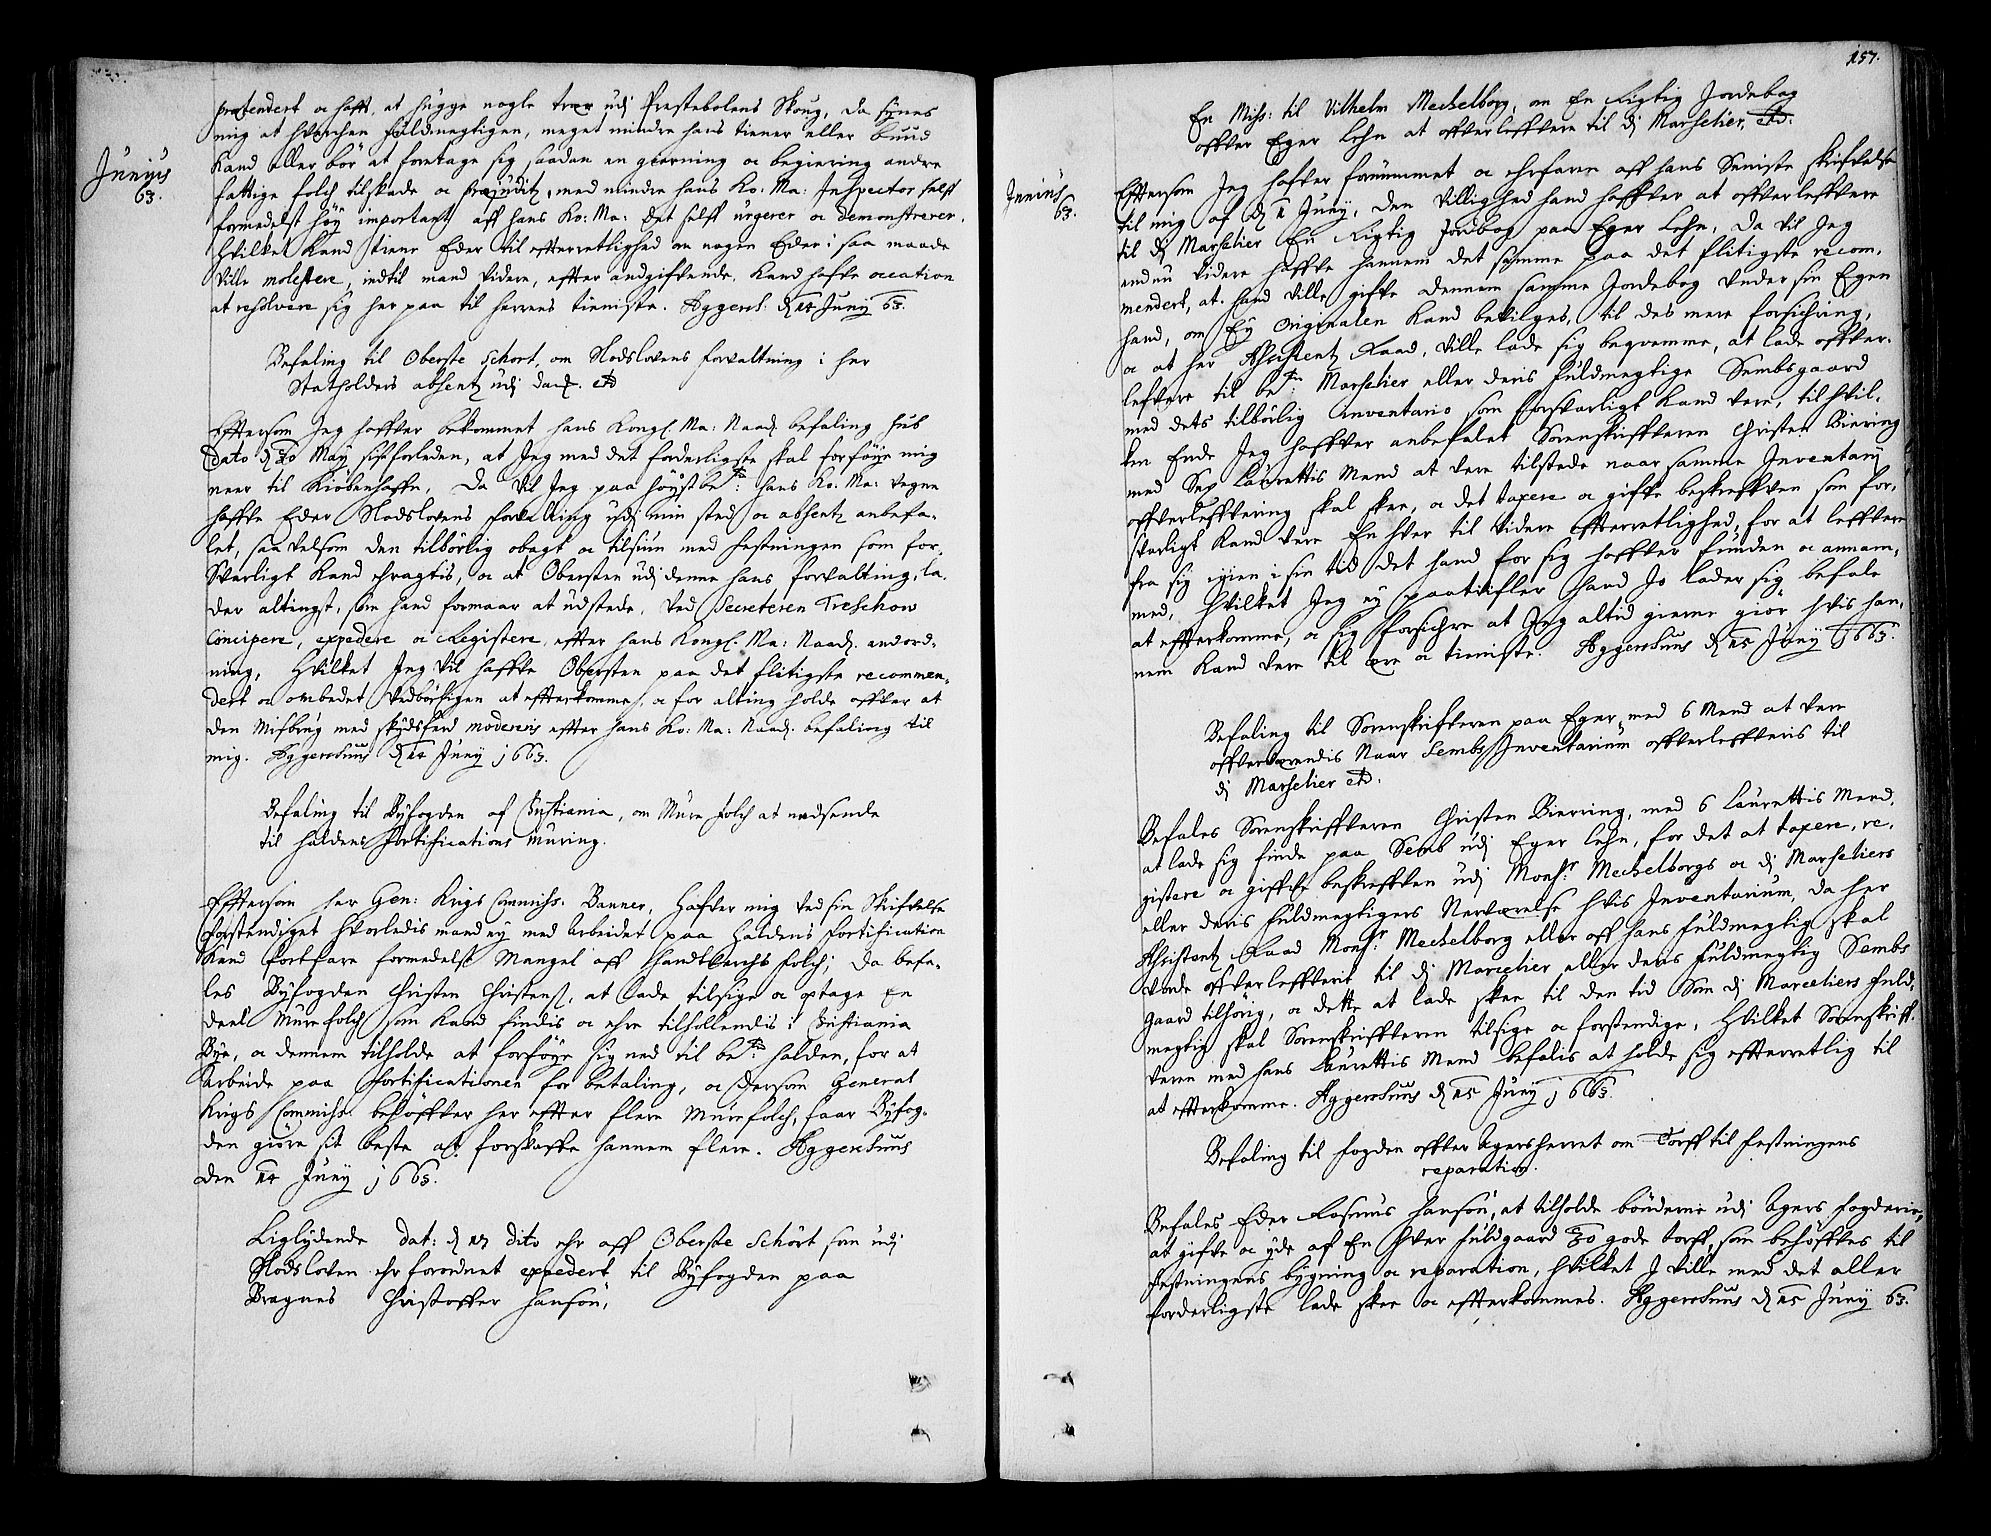 Junius
63.
prætendert oc hafft, at hugge nogle træer udj Prestebolens Skoug, da synes
mig at hverchen fuldmegtigen, meget mindre hans tiener eller buud
Kand eller bör at foretage sig saadan en gierning oc begiering andre
fattige folch til skade oc præjuditz, med mindre hans Ko: Ma: Inspector self
formedelst höy important aff hans Ko: Ma: det self urgerer oc demonstrerer.
Hvilket Kand tiene Eder til efterretlighed om nogen Eder i saa maade
ville molestere, indtil mand videre, effter andgiffvende, Kand hafve occation
at resolvere sig her paa til herrens tienniste. Aggersh: d 14 Junij 63.
Befaling til Oberste Schort, om Slodslovens forvaltning i her
Statholders absentz udj danz. etc
Effttersom Jeg haffver bekommet hans Kongl. Ma: Naad. befaling sub
dato d 30 Maij sistforleden, at Jeg med det forderligste skal forföye mig
neer til Kiöbenhaffn, Da vil Jeg paa höystbete: hans Ko: Ma: vegne
haffve Eder Slodslovens forvaltning udj min sted oc absentz anbefa-
let, saa velsom den tilbörlig obagt oc tilsiun med festningen som for-
svarligt Kand eragtis, oc at Obersten udj denne hans forvalting, la-
der altingest, som hand formaar at udstede, ved Secreteren Treschow
Concipere, expedere oc Registere, effter hans Kongl. Ma: Naad. anord-
ning, Hvilket Jeg vil haffve Obersten paa det flitigste recommen-
dert oc ombedet vedbörligen at effterkomme, oc for alting holde offver at
den Misbrug med skydsferd modereris effter hans Ko: Ma: Naad. befaling til
mig. Aggershuus d 14 Junij 1663.
Befaling til Byfogden af Christiania, om Mure folch at nedsende
til haldens fortifications Muring.
Efftersom her Gen: Krigs Commiss: Banner, Hafver mig ved sin Skrifvelse
forstendiget hvorledis mand ey med Arbeidet paa Haldens fortification
Kand fortfare formedelst Mangel aff Handtverchs folch; da befa-
les Byfogden Christen Christens., at lade tilsige oc optage en
deel Murefolch som Kand findis oc ehre tilhollendis i Christiania
Bye, oc dennem tilholde at forföye sig ned til bete: halden, for at
Arbeide paa fortificationen for betaling, oc dersom General
Krigs Commiss. behöffver her effter flere Murefolch, faar Byfog-
den giöre sit beste at forskaffe hannem flere. Aggershuus
den 14 Junij 1663.
Liglydende dat: d 17 dito ehr aff Oberste Schört som udj
Slodsloven ehr forordnet expedert til Byfogden paa
Bragnes Christoffer Hansön,
157.
Junius
63.
En Miss: til Vilhelm Mechelborg, om En Rigtig Jordebog
offver Eger Lehn at offverleffvere til dj Marselier, etc.
Efftersom Jeg hafver fornummet oc ehrfaren aff hans Seniste skrifvelse
til mig af d 11 Junij, den villighed hand haffver at offverleffvere
til dj Marselier En Rigtig Jordbog paa Eger Lehn, Da vil Jeg
endnu videre haffve hannem det samme paa det flitigste recom-
mendert, at hand ville gifve dennem samme Jordebog under sin Egen
hand, om Ey Originalen Kand bevilges, til des mere forsichring,
oc at her Assistentz Raad, ville lade sig beqvemme, at lade offver-
lefvere til bete: Marselier eller deris fuldmegtige Sembsgaard
med dets tilbörlig Inventario som forsvarligt Kand vere, til hvil-
ken Ende Jeg haffver anbefalet Sorenskriffveren Christen Bierring
med Sex Laurettis Mend at vere tilstede naar samme Inventarij
offverleffvering skal skee, oc det taxere oc gifve beskreffven som for-
svarligt Kand vere Enhver til videre effterretlighed, for at leffvere
fra sig igien i sin tid det hand for sig haffver funden oc annam-
med, Hvilket Jeg ey paatvifler hand Jo lader sig befale
at effterkomme, oc sig forsichre at Jeg altid gierne giör hvis han-
nem Kand vere til ære oc tienniste. Aggershuus d 15 Junij 1663.
Befaling til Sorenskrifveren paa Eger, med 6 Mend at vere
offverværendis Naar Sembs Inventarium offverleffveris til
dj Marselier etc.
Befales Sorenskriffveren Christen Bierring, med 6 Laurettis Mend,
at lade sig finde paa Semb udj Eger Lehn, for det at taxere, re-
gistere oc giffve beskreffven udj Monsr. Mechelborgs oc dj Marseliers
eller deris fuldmegtigers Nerværelse hvis Inventarium, da her
Assistentz Raad Monsr. Mechelborg eller aff hans fuldmegtig skal
vorde offverleffverit til dj Marcelier eller deris fuldmegtig Sembs
gaard tilhörig, oc dette at lade skee til den tid Som dj Marceliers fuld-
megtig skal Sorenskriffveren tilsige oc forstendige, Hvilket Sorenskriff-
veren med hans Laurettis Mend befalis at holde sig effterretlig til
at effterkomme. Aggershuus d 15 Junij 1663.
Befaling til fogden offver Agersherret om Torff til Festningens
reparation.
Befales Eder Rasmus Hansön, at tilholde bönderne udj Agers fogderie,
at gifve oc yde af En hver fuldgaard 30 gode torff, som behöffves til
Festningens bygning oc reparation, hvilket J ville med det aller
forderligste lade skee oc efterkommes. Aggershuus d 15 Junij 63.